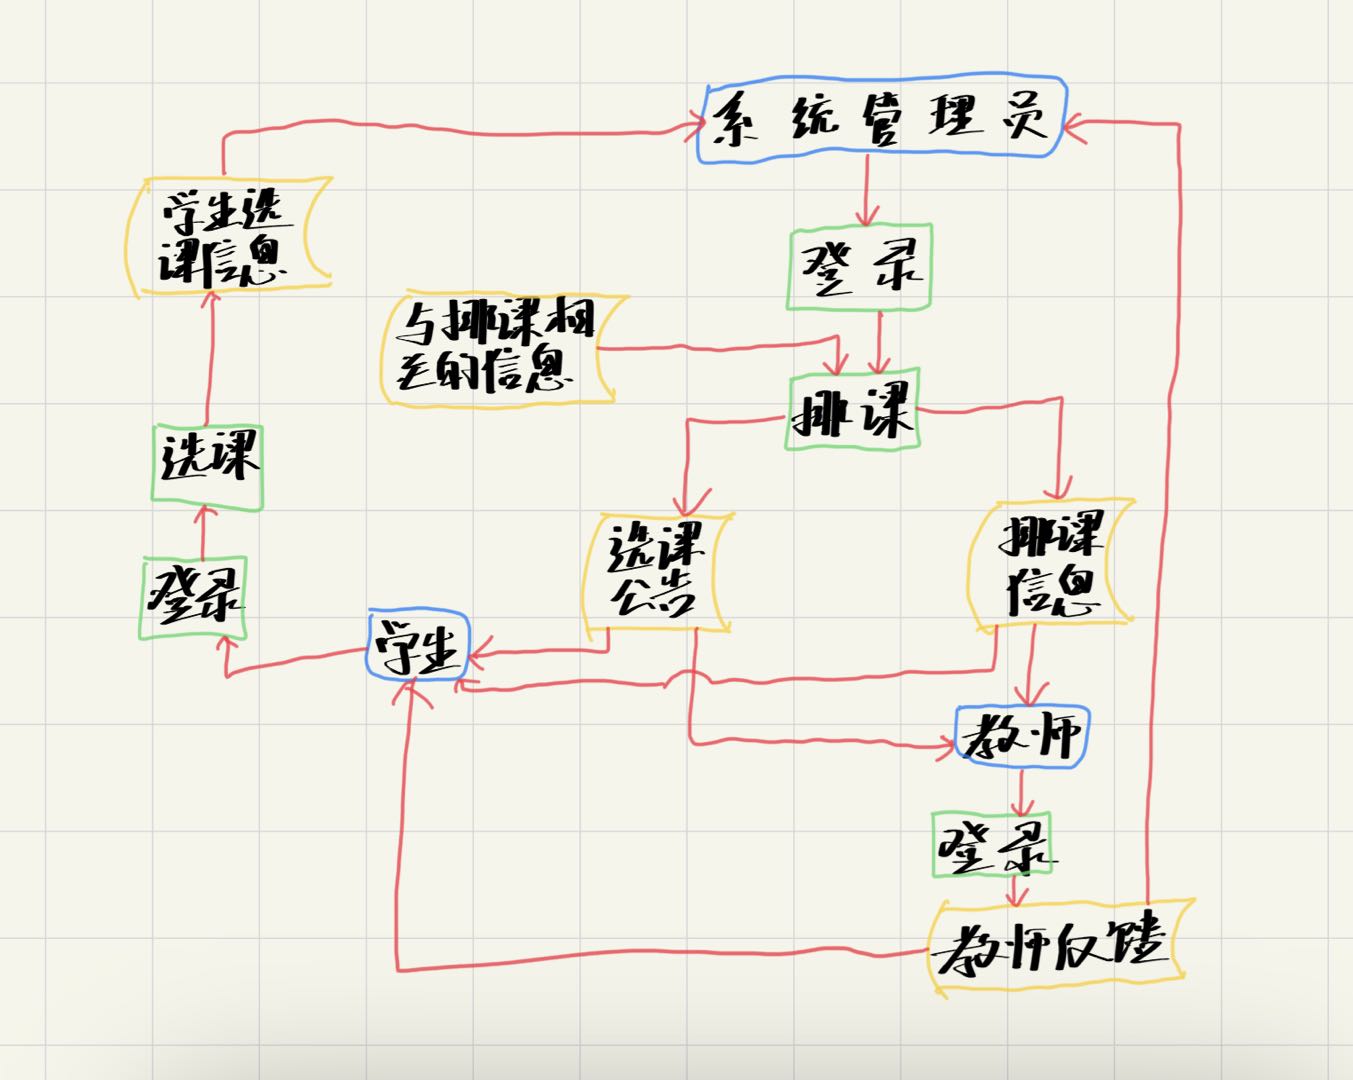 系统管理员
学生选
课信息
登录
与排课相
关的信息
排课
选课
选课
公告
排课
信息
登录
学生
教师
登录
教师反馈